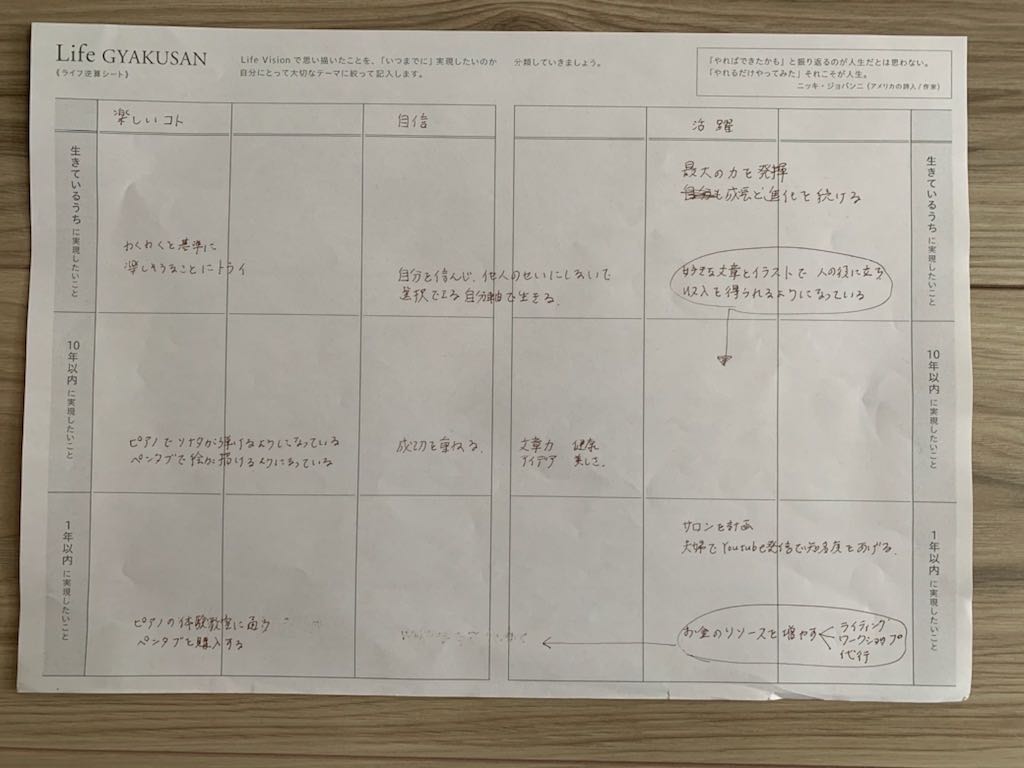 Life GYAKUSAN
《ライフ逆算シート》
Life Vision で思い描いたことを、「いつまでに」実現したいのか 分類していきましょう。
自分にとって大切なテーマに絞って記入します。
「やればできたかも」と振り返るのが人生だとは思わない。
「やれるだけやってみた」それこそが人生。
ニッキ・ジョバンニ（アメリカの詩人 / 作家）
楽しいコト
自信
活躍
生きているうちに実現したいこと
わくわくを基準に
楽しそうなことにトライ
自分を信じ、他人のせいにしないで
選択できる自分軸で生きる。
最大の力を発揮
成長と進化を続ける
好きな文章とイラストで 人の役に立ち
収入を得られるようになっている
生きているうちに実現したいこと
10年以内に実現したいこと
ピアノでソナタが弾けるようになっている
ペンタブで絵が描けるようになっている
成功を重ねる。
文章力 健康
アイデア 美しさ。
10年以内に実現したいこと
1年以内に実現したいこと
ピアノの体験教室に
ペンタブを購入する
サロンを計画
夫婦でYoutube発信で知名度をあげる。
お金のリソースを増やす
ライティング
ワークショップ
代行
1年以内に実現したいこと